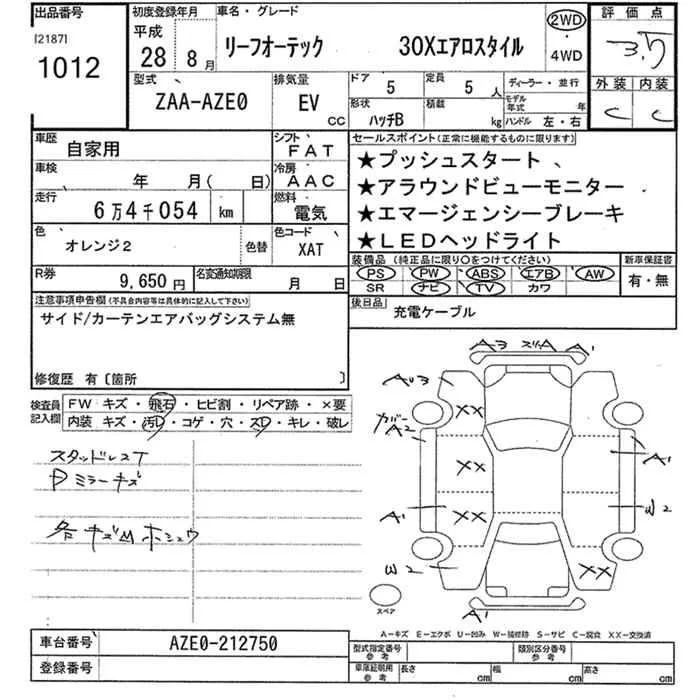 出品番号
[2187]
1012
初度登録年月
平成
28 年 8 月
車名・グレード
リーフオーテック 30Xエアロスタイル
2WD
4WD
評価点
3.5
外装 内装
C C
型式
ZAA-AZE0
排気量
EV
CC
ドア 5
定員 5 人
形状 ハッチB
積載 kg
ディーラー・並行
モデル年式 年
ハンドル 左・右
車歴 自家用
シフト FAT
車検 年 月( 日)
冷房 AAC
走行 6万4千054 km
燃料 電気
色 オレンジ2
色替
色コード XAT
R券 9,650円
名変通知期限 月 日
セールスポイント(正常に機能するものに限ります)
★プッシュスタート
★アラウンドビューモニター
★エマージェンシーブレーキ
★LEDヘッドライト
装備品 (純正品に限り○をつけてください)
PS PW ABS エアB AW
SR ナビ TV カワ
新車保証書
有・無
後日品 充電ケーブル
注意事項申告欄(不具合内容等は具体的に記入して下さい)
サイド/カーテンエアバッグシステム無
修復歴 有〔箇所 〕
検査員記入欄
FW キズ・飛石・ヒビ割・リペア跡・×要
内装 キズ・汚レ・コゲ・穴・スレ・キレ・破レ
スタッドレスT
Pミラーキズ
各キズ凹ホシュウ
A3 スリA A1
AU3
XX
カバー
A2
A1
XX
A1
XX
W2
W2
XX
スペア
A1
A-キズ E-エクボ U-凹み W-補修跡 S-サビ C-腐食 XX-交換済
車台番号 AZE0-212750
登録番号
型式指定番号 参考
類別区分番号 参考
車庫証明用 参考
長さ cm
幅 cm
高さ cm